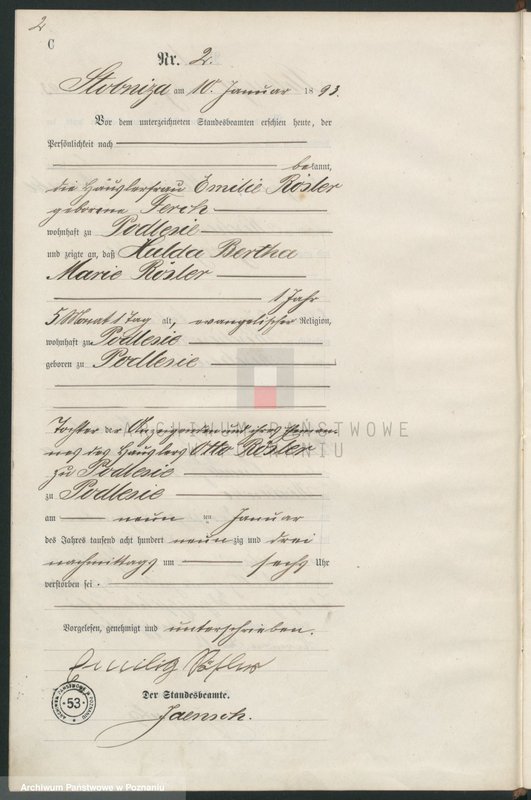 2
C
Nr. 2.
Stobniza am 10. Januar 1893.
Vor dem unterzeichneten Standesbeamten erschien heute, der
Persönlichkeit nach
bekannt,
die Häuslerfrau Emilie Rösler
geborene Ferch
wohnhaft zu Podlesie
und zeigte an, daß Hulda Bertha
Marie Rösler
1 Jahr
5 Monat 1 Tag alt, evangelischer Religion,
wohnhaft zu Podlesie
geboren zu Podlesie
Tochter der Anzeigenden und ihres Eheman-
nes des Häuslers Otto Rösler
zu Podlesie
zu Podlesie
am neun ten Januar
des Jahres tausend acht hundert neunzig und drei
nachmittags um sechs Uhr
verstorben sei.
Vorgelesen, genehmigt und unterschrieben.
Emilie Rösler
Der Standesbeamte.
Jaensch.
53
ARCHIWUM PAŃSTWOWE
W POZNANIU
Archiwum Państwowe w Poznaniu